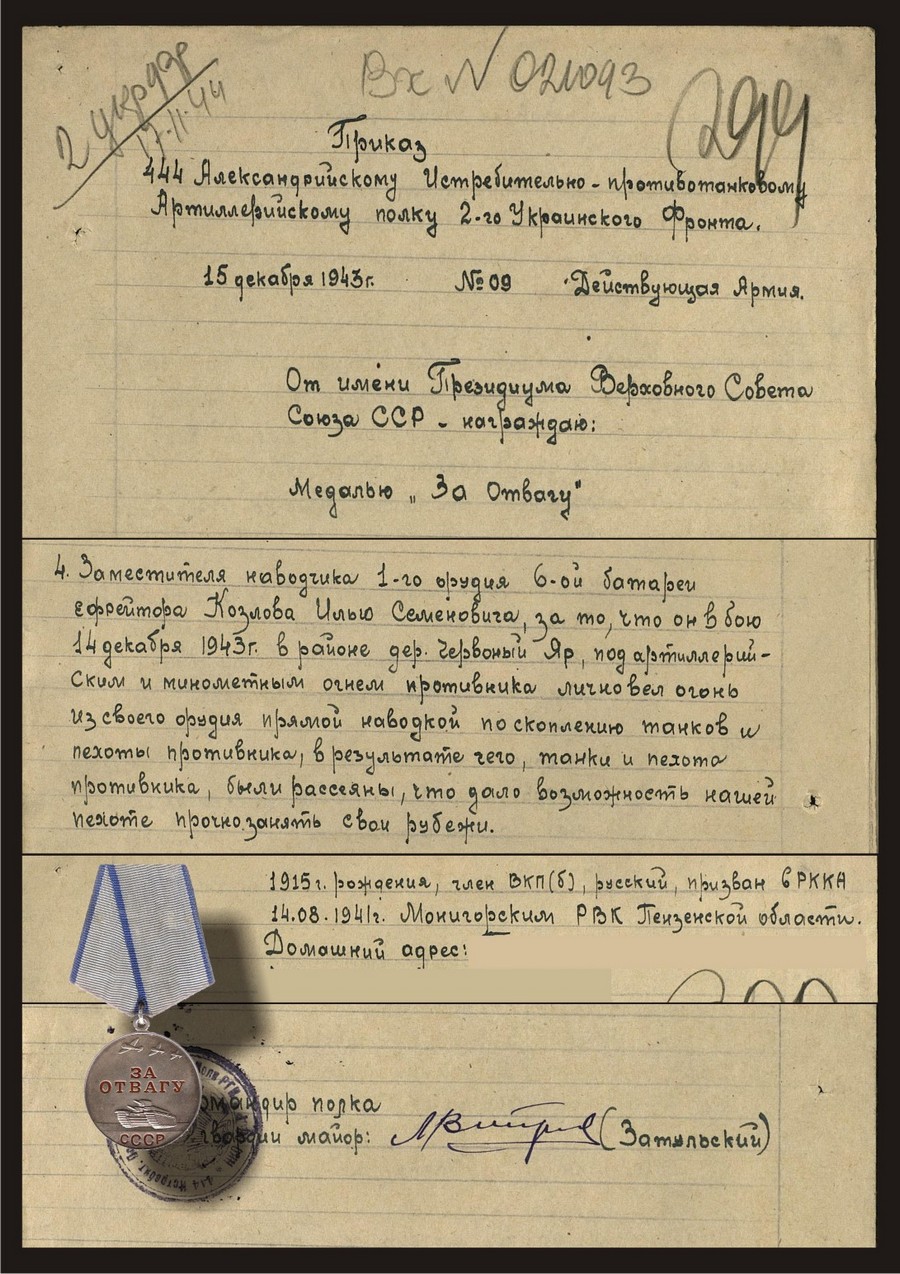 Вх № 021093
2 укр
17.11.44
299
Приказ
444 Александрийскому Истребительно-противотанковому
Артиллерийскому полку 2-го Украинского Фронта.
15 декабря 1943г. № 09 Действующая Армия.
От имени Президиума Верховного Совета
Союза ССР - награждаю:
Медалью „За Отвагу"
4. Заместителя наводчика 1-го орудия 6-ой батареи
ефрейтора Козлова Илью Семеновича, за то, что он в бою
14 декабря 1943г. в районе дер. Червоный Яр, под артиллерий-
ским и минометным огнем противника лично вел огонь
из своего орудия прямой наводкой по скоплению танков и
пехоты противника, в результате чего, танки и пехота
противника, были рассеяны, что дало возможность нашей
пехоте прочно занять свои рубежи.
1915 г. рождения, член ВКП(б), русский, призван в РККА
14.08.1941г. Монигорским РВК Пензенской области.
Домашний адрес:
ЗА
ОТВАГУ
СССР
омандир полка
гвардии майор: (Затульский)